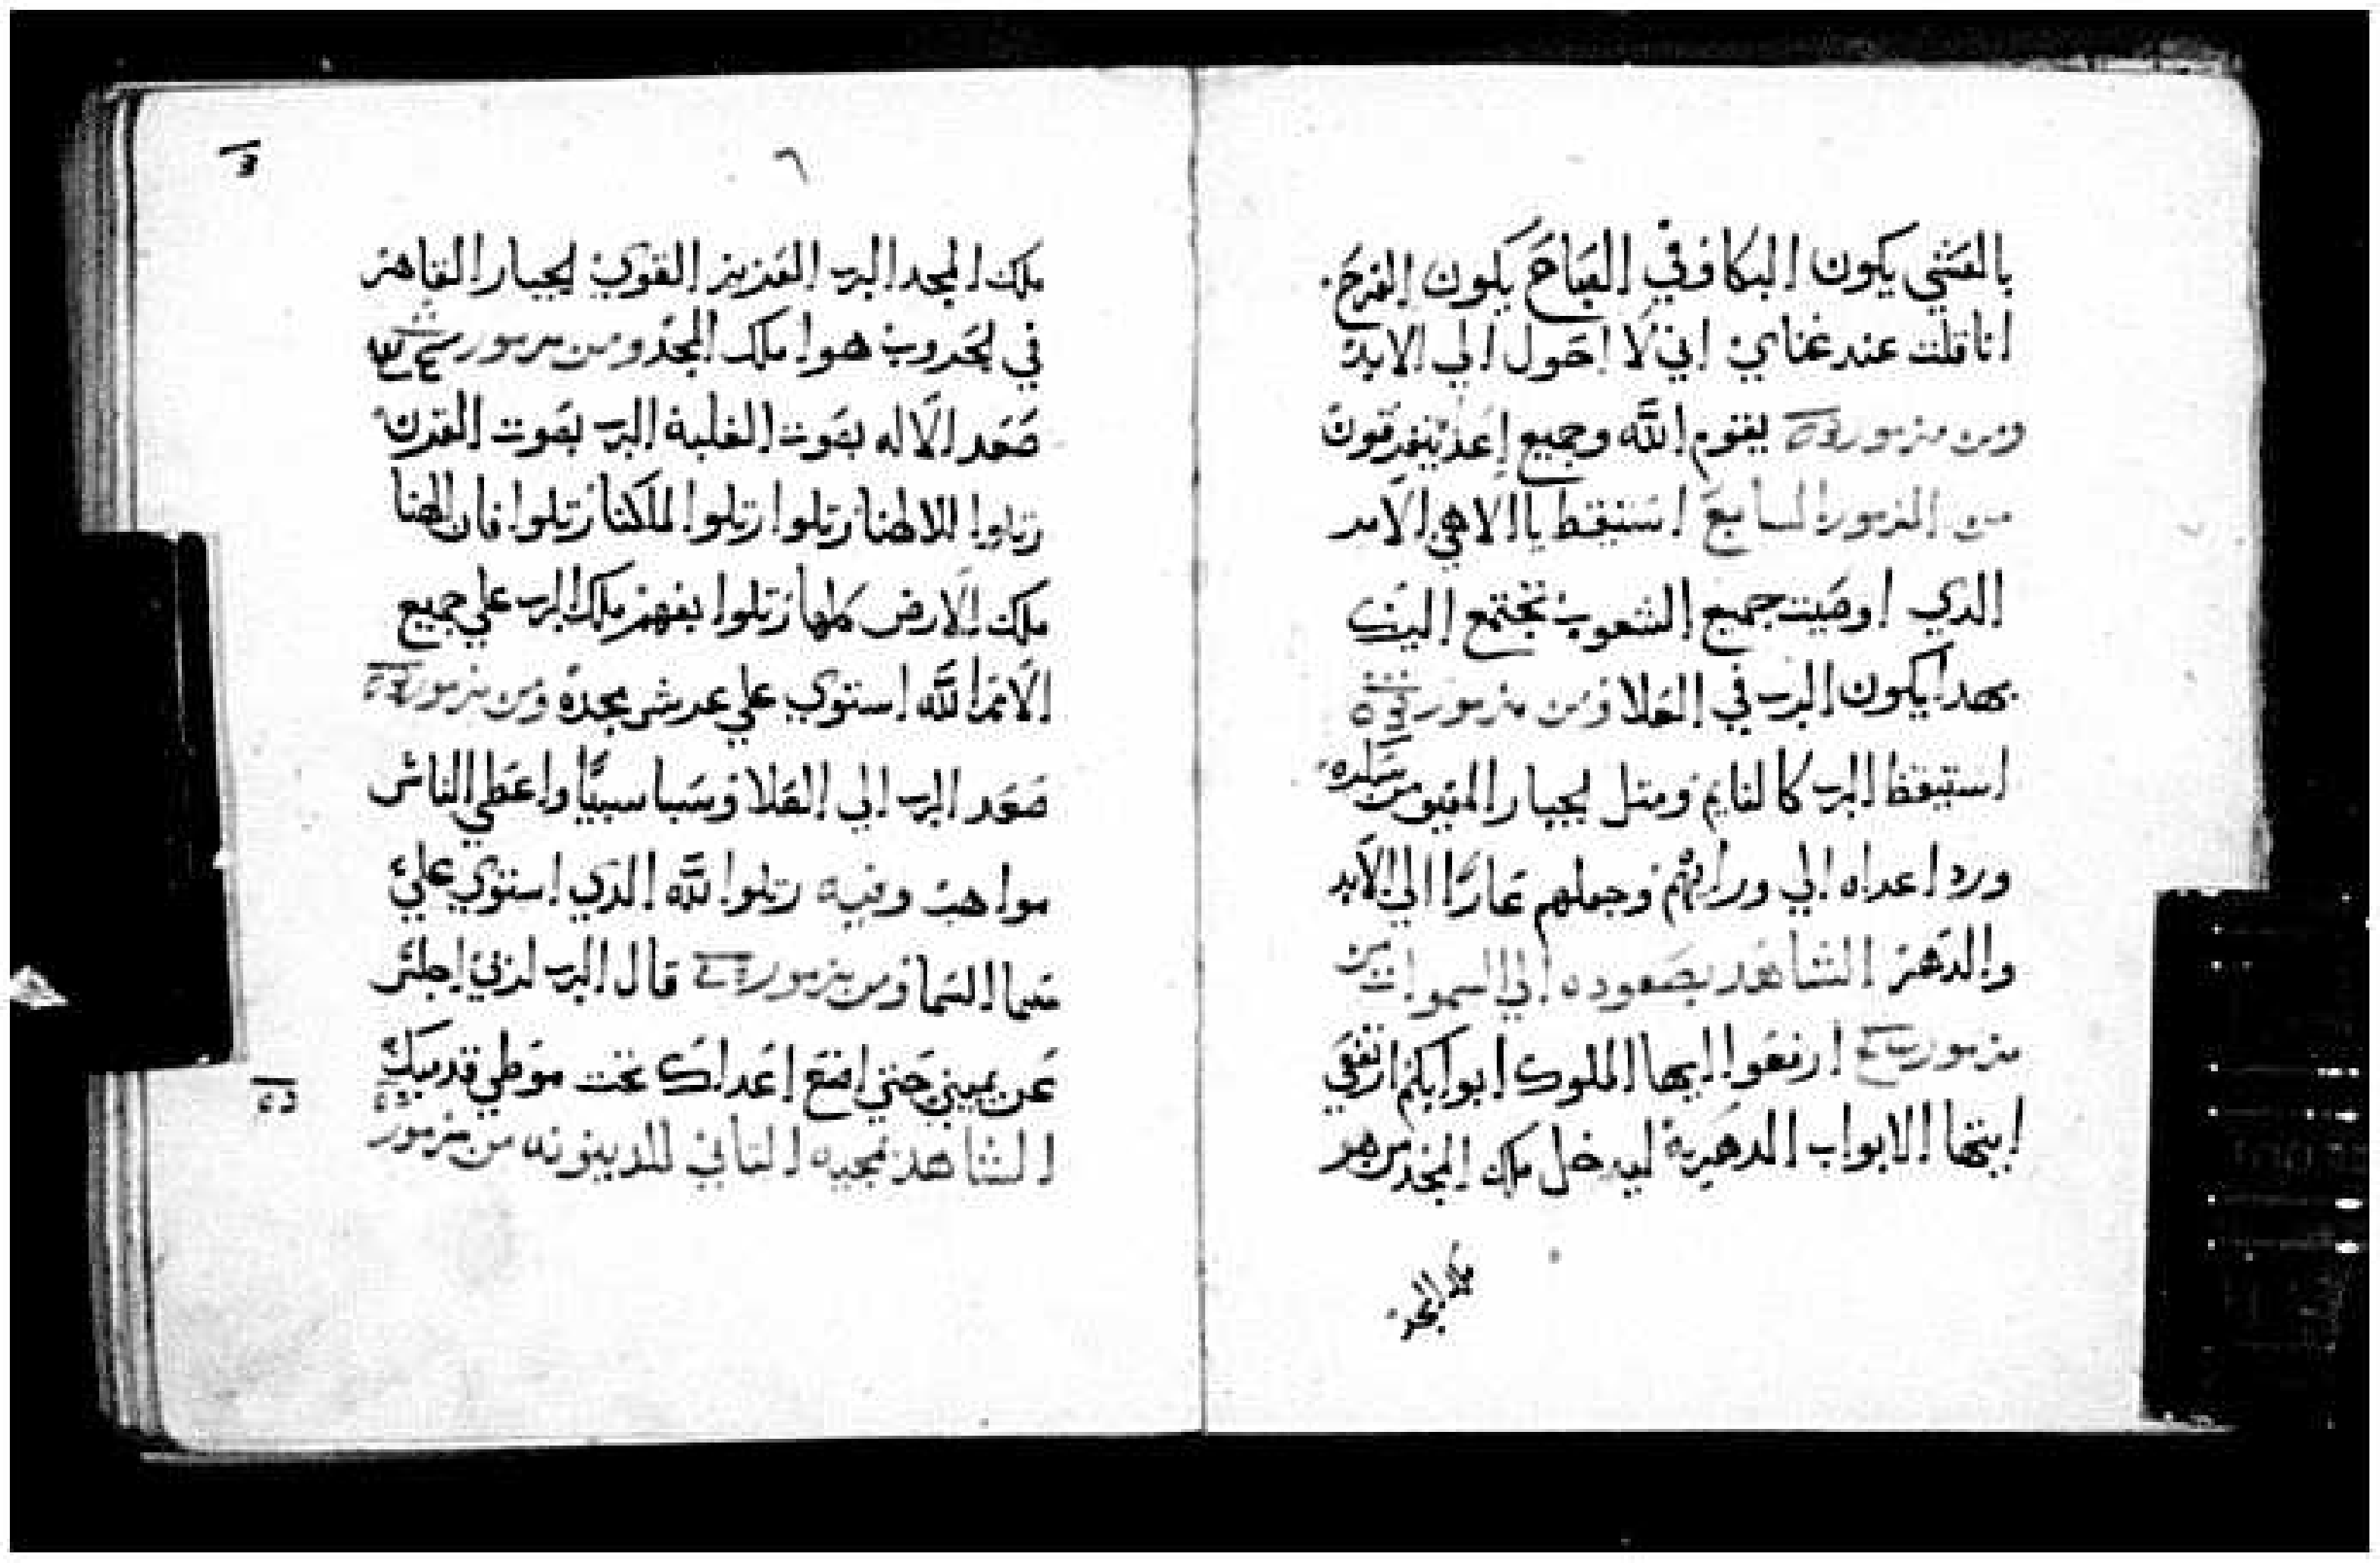 بالعشي يكون البكا وفي الصباح يكون الفرح.
انا قلت عند غناي اني لا احول الي الابد
ومن مزمور يقوم الله وجميع اعداه يتفرقون
من المزمور السابع استيقظ يا الاهي الامر
الذي اوصيت جميع الشعوب تجتمع اليك
بهدا يكون الرب في العلا ومن مزمور
استيقظ الرب كالنايم ومثل الجبار المفيق من سكره
ورد اعداه الي ورايهم وجعلهم عارا الي الابد
والدهر الشاهد بصعوده الي السموات من
مزمور ارفعوا ايها الملوك ابوابكم ارتفعي
ايتها الابواب الدهرية ليدخل ملك المجد من هو
ملك المجد
٦
ملك المجد الرب العزيز القوي الجبار القاهر
في الحروب هوا ملك المجد ومن مزمور
صعد الاله بصوت الغلبة الرب بصوت القرن
رتلوا للاهنا رتلوا رتلوا لملكنا رتلوا فان الهنا
ملك الارض كلها رتلوا بفهم ملك الرب علي جميع
الامم الله استوي علي عرش مجده ومن مزمور
صعد الرب الي العلا وسبا سبيا واعطي الناس
مواهب وفيه رتلوا لله الذي استوي علي
سما السما ومن مزمور قال الرب لربي اجلس
عن يميني حتي اضع اعداك تحت موطي قدميك
الشاهد لمجيه التاني للدينونه من مزمور